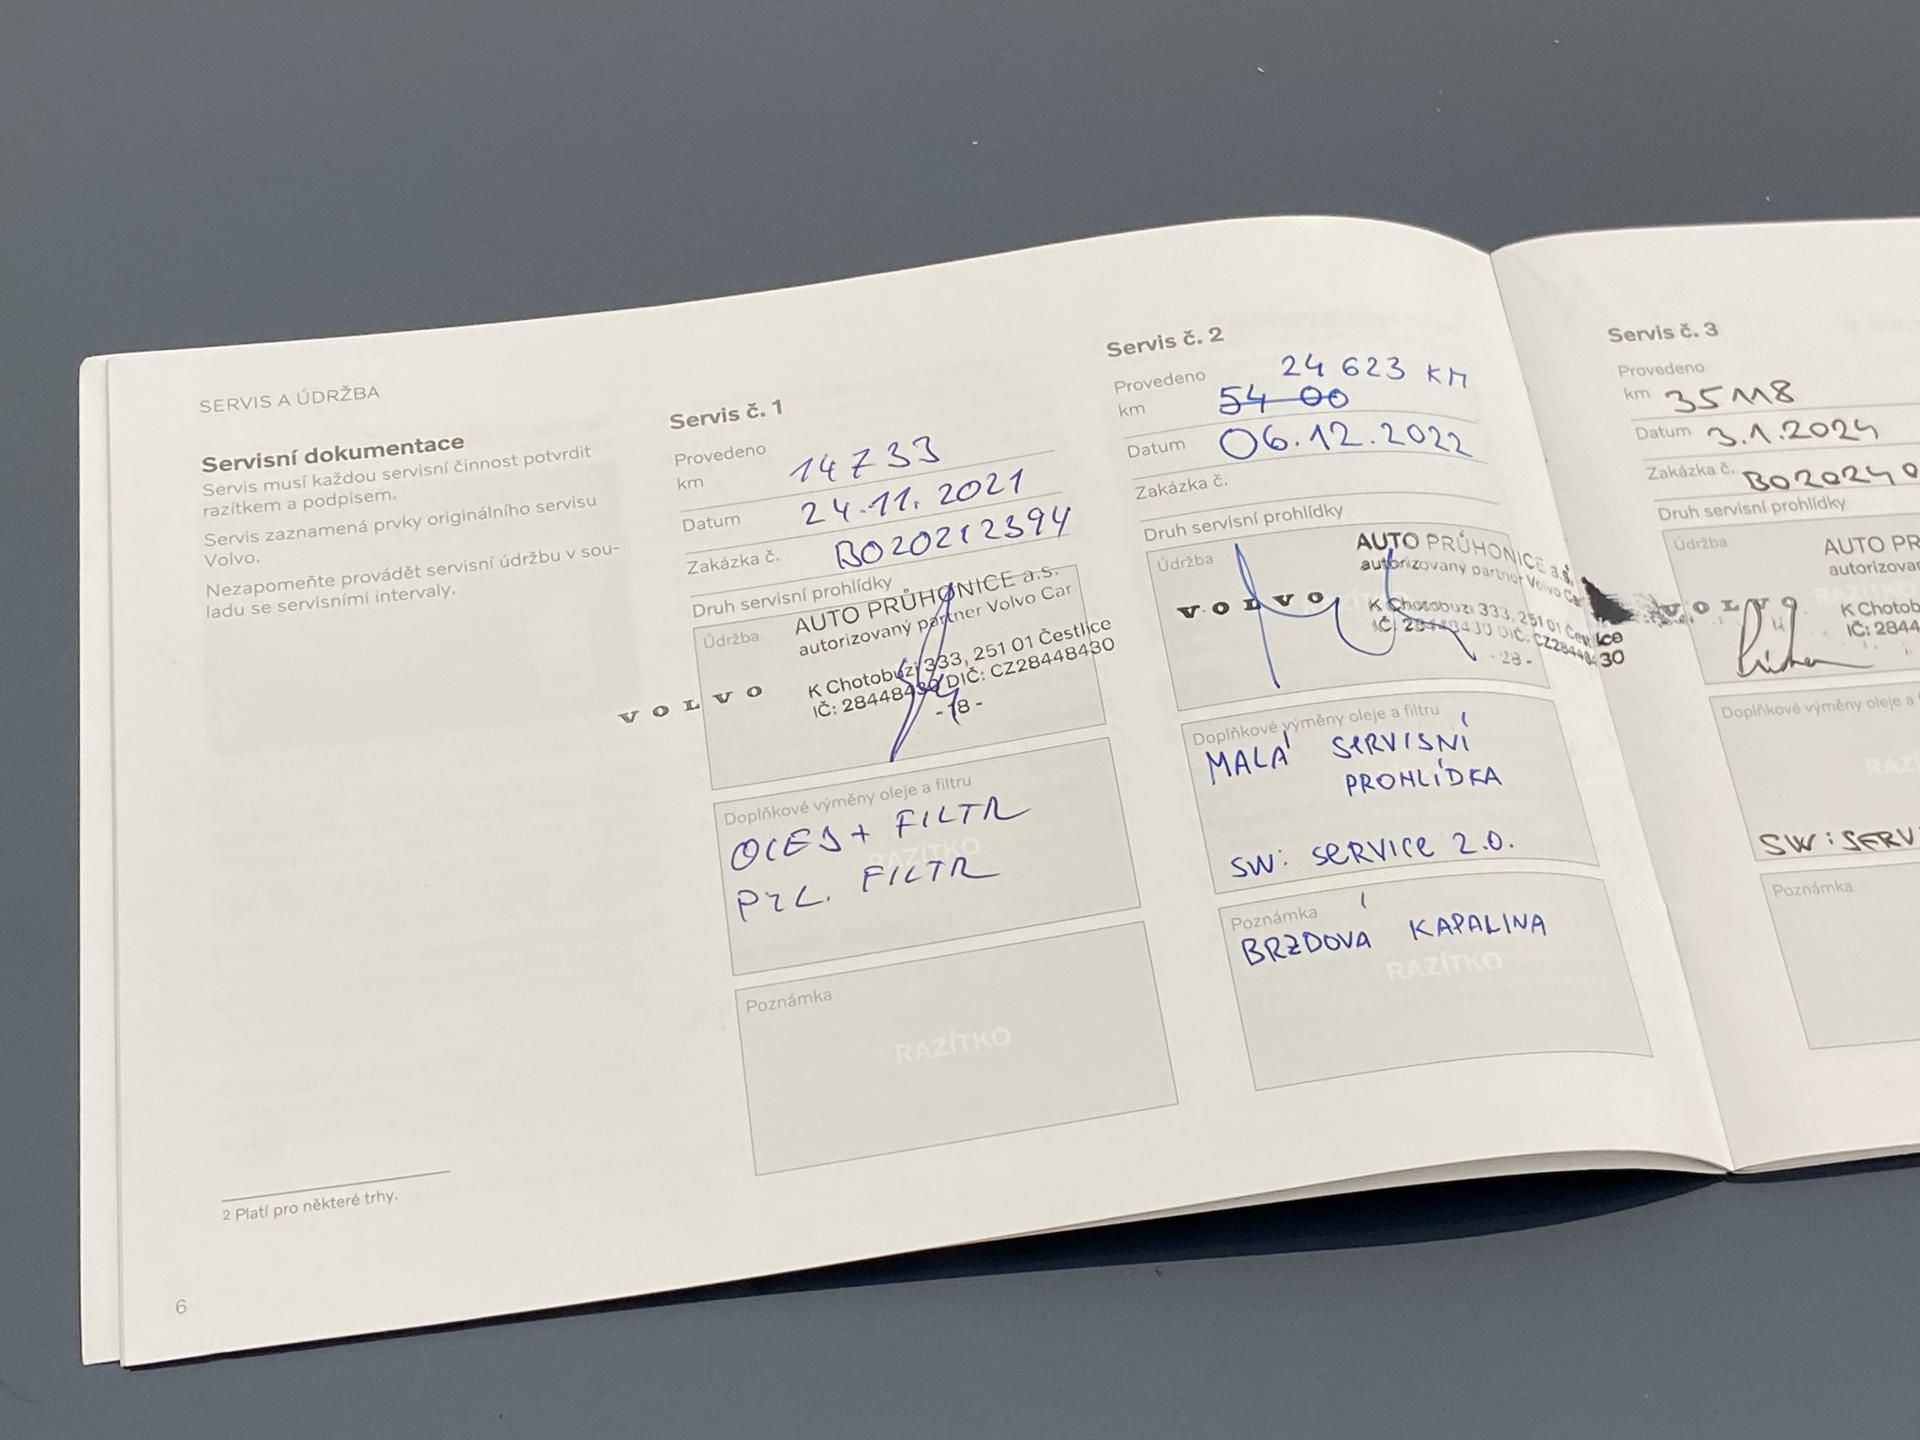 SERVIS A ÚDRŽBA
Servisní dokumentace
Servis musí každou servisní činnost potvrdit
razítkem a podpisem.
Servis zaznamená prvky originálního servisu
Volvo.
Nezapomeňte provádět servisní údržbu v sou-
ladu se servisními intervaly.
2 Platí pro některé trhy.
6
Servis č. 1
Provedeno
km 14733
Datum 24.11.2021
Zakázka č. BO20212394
Druh servisní prohlídky
Údržba
AUTO PRŮHONICE a.s.
autorizovaný partner Volvo Car
VOLVO
K Chotobuzi 333, 251 01 Čestlice
IČ: 28448430 DIČ: CZ28448430
- 18 -
Doplňkové výměny oleje a filtru
OLEJ + FILTR
RAZÍTKO
PYL. FILTR
Poznámka
RAZÍTKO
Servis č. 2
Provedeno 24 623 KM
km 54 00
Datum 06.12.2022
Zakázka č.
Druh servisní prohlídky
Údržba
AUTO PRŮHONICE a.s.
autorizovaný partner Volvo Car
VOLVO
K Chotobuzi 333, 251 01 Čestlice
IČ: 28448430 DIČ: CZ28448430
- 28 -
Doplňkové výměny oleje a filtru
MALÁ SERVISNÍ
PROHLÍDKA
SW: SERVICE 2.0.
Poznámka
BRZDOVÁ KAPALINA
RAZÍTKO
Servis č. 3
Provedeno
km 35118
Datum 3.1.2024
Zakázka č. BO20240
Druh servisní prohlídky
Údržba
AUTO PR
autorizovan
VOLVO
K Chotob
IČ: 2844
Doplňkové výměny oleje a
RAZ
SW: SERVI
Poznámka